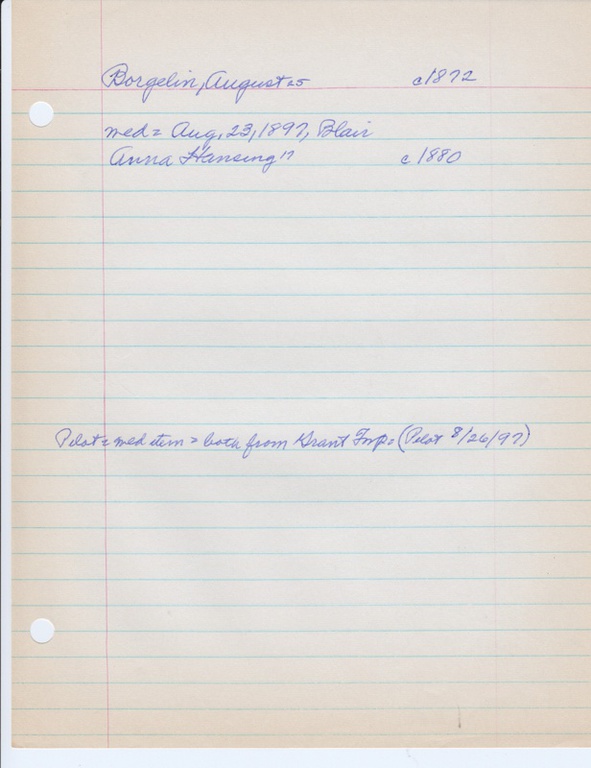 Borgelin, August 25 c1872
med = Aug, 23, 1897, Blair
Anna Hansing 17 c1880
Pilot = med item = both from Grant Twp = (Pilot 8/26/97)